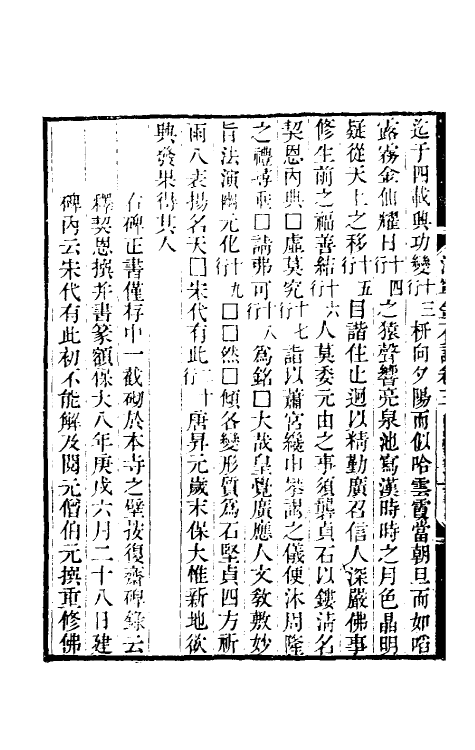 迄于四載興功變行十三枅向夕陽而似哈雲霞當朝旦而如啗
露霧金仙耀日行十四之猿聲響亮泉池寫漢時時之月色晶明
疑從天上之移行十五目諧住止迥以精勤廣召信人深嚴佛事
修生前之福善結行十六人莫委元由之事須龔貞石以鏤淸名
契恩內典□虛莫究行十七詣以蕭宮纔申㕘謁之儀便沐周隆
之禮尋䡖□請弗可行十八爲銘□大哉皇覺廣應人文敎敷妙
旨法演幽元化行十九□□然□傾各變形質爲石堅貞四方祈
雨八表揚名天□宋代有此行二十唐昇元歲末保大惟新地欲
興發果得其人
右碑正書僅存中一截砌於本寺之壁按復齋碑錄云
釋契恩撰并書篆額保大八年庚戌六月二十八日建
碑內云宋代有此初不能解及閱元僧伯元撰重修佛